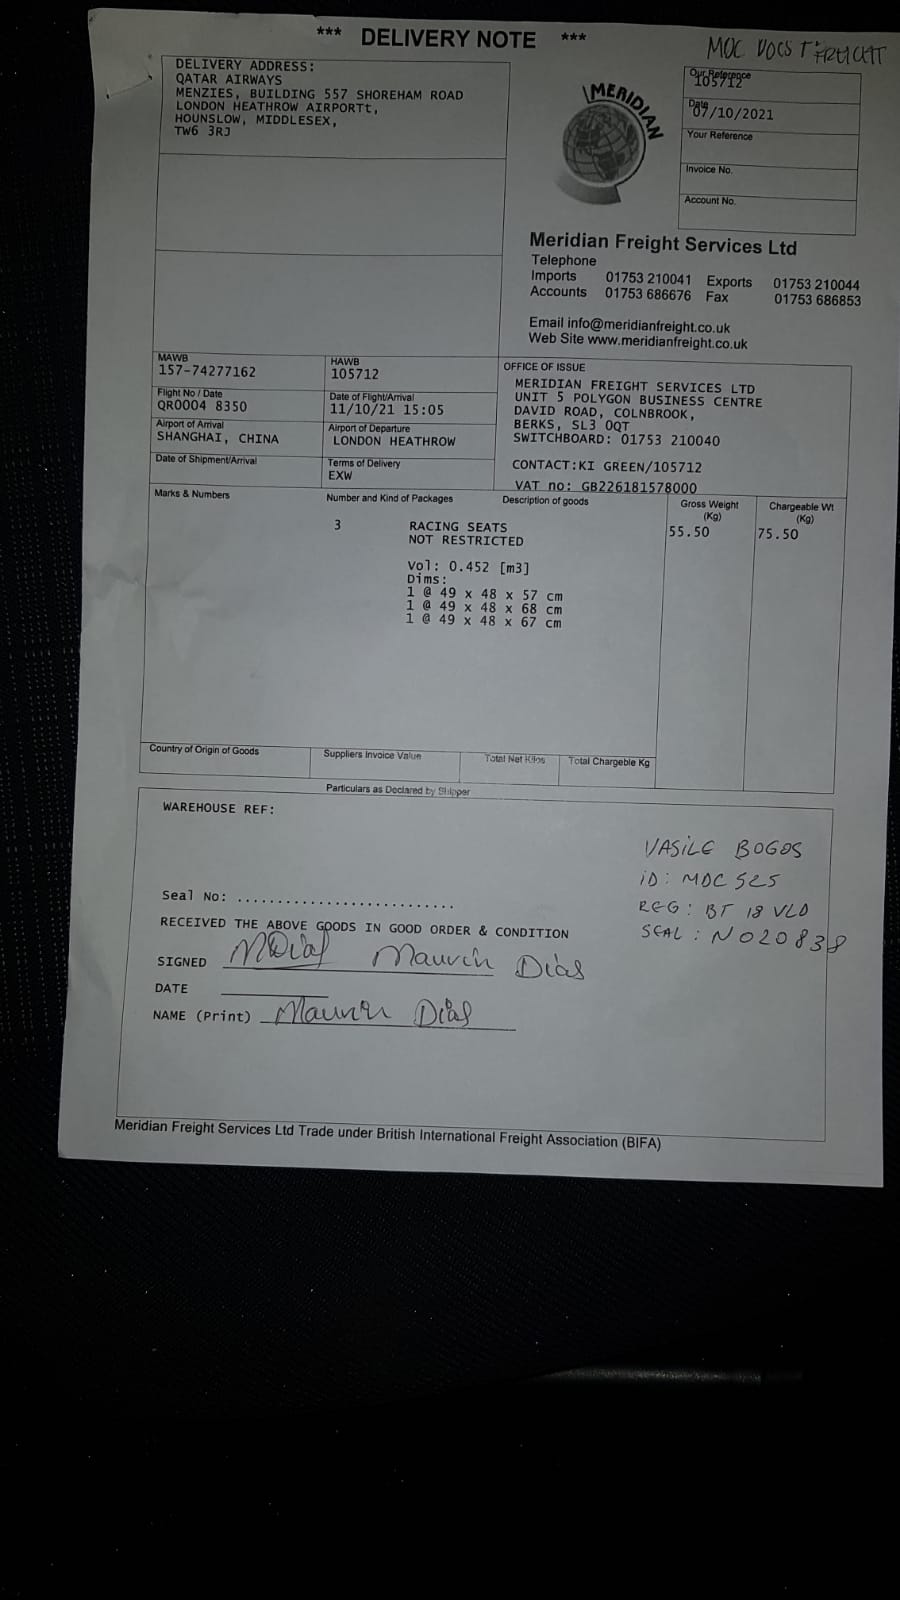 *** DELIVERY NOTE ***
MOC DOCS + FREIGHT
DELIVERY ADDRESS:
QATAR AIRWAYS
MENZIES, BUILDING 557 SHOREHAM ROAD
LONDON HEATHROW AIRPORTt,
HOUNSLOW, MIDDLESEX,
TW6 3RJ
MERIDIAN
Our Reference
105712
Date
07/10/2021
Your Reference
Invoice No.
Account No.
Meridian Freight Services Ltd
Telephone
Imports 01753 210041 Exports 01753 210044
Accounts 01753 686676 Fax 01753 686853
Email info@meridianfreight.co.uk
Web Site www.meridianfreight.co.uk
MAWB
157-74277162
HAWB
105712
Flight No / Date
QR0004 8350
Date of Flight/Arrival
11/10/21 15:05
Airport of Arrival
SHANGHAI, CHINA
Airport of Departure
LONDON HEATHROW
Date of Shipment/Arrival
Terms of Delivery
EXW
OFFICE OF ISSUE
MERIDIAN FREIGHT SERVICES LTD
UNIT 5 POLYGON BUSINESS CENTRE
DAVID ROAD, COLNBROOK,
BERKS, SL3 0QT
SWITCHBOARD: 01753 210040
CONTACT:KI GREEN/105712
VAT no: GB226181578000
Marks & Numbers Number and Kind of Packages Description of goods Gross Weight (Kg) Chargeable Wt (Kg)
3 RACING SEATS 55.50 75.50
NOT RESTRICTED
Vol: 0.452 [m3]
Dims:
1 @ 49 x 48 x 57 cm
1 @ 49 x 48 x 68 cm
1 @ 49 x 48 x 67 cm
Country of Origin of Goods Suppliers Invoice Value Total Net Kilos Total Chargeble Kg
Particulars as Declared by Shipper
WAREHOUSE REF:
VASILE BOGOS
ID: MOC 525
REG: BT 18 VLD
SEAL: N020838
Seal No: ..........................
RECEIVED THE ABOVE GOODS IN GOOD ORDER & CONDITION
SIGNED MDias Mauvin Dias
DATE
NAME (Print) Mauvin Dias
Meridian Freight Services Ltd Trade under British International Freight Association (BIFA)